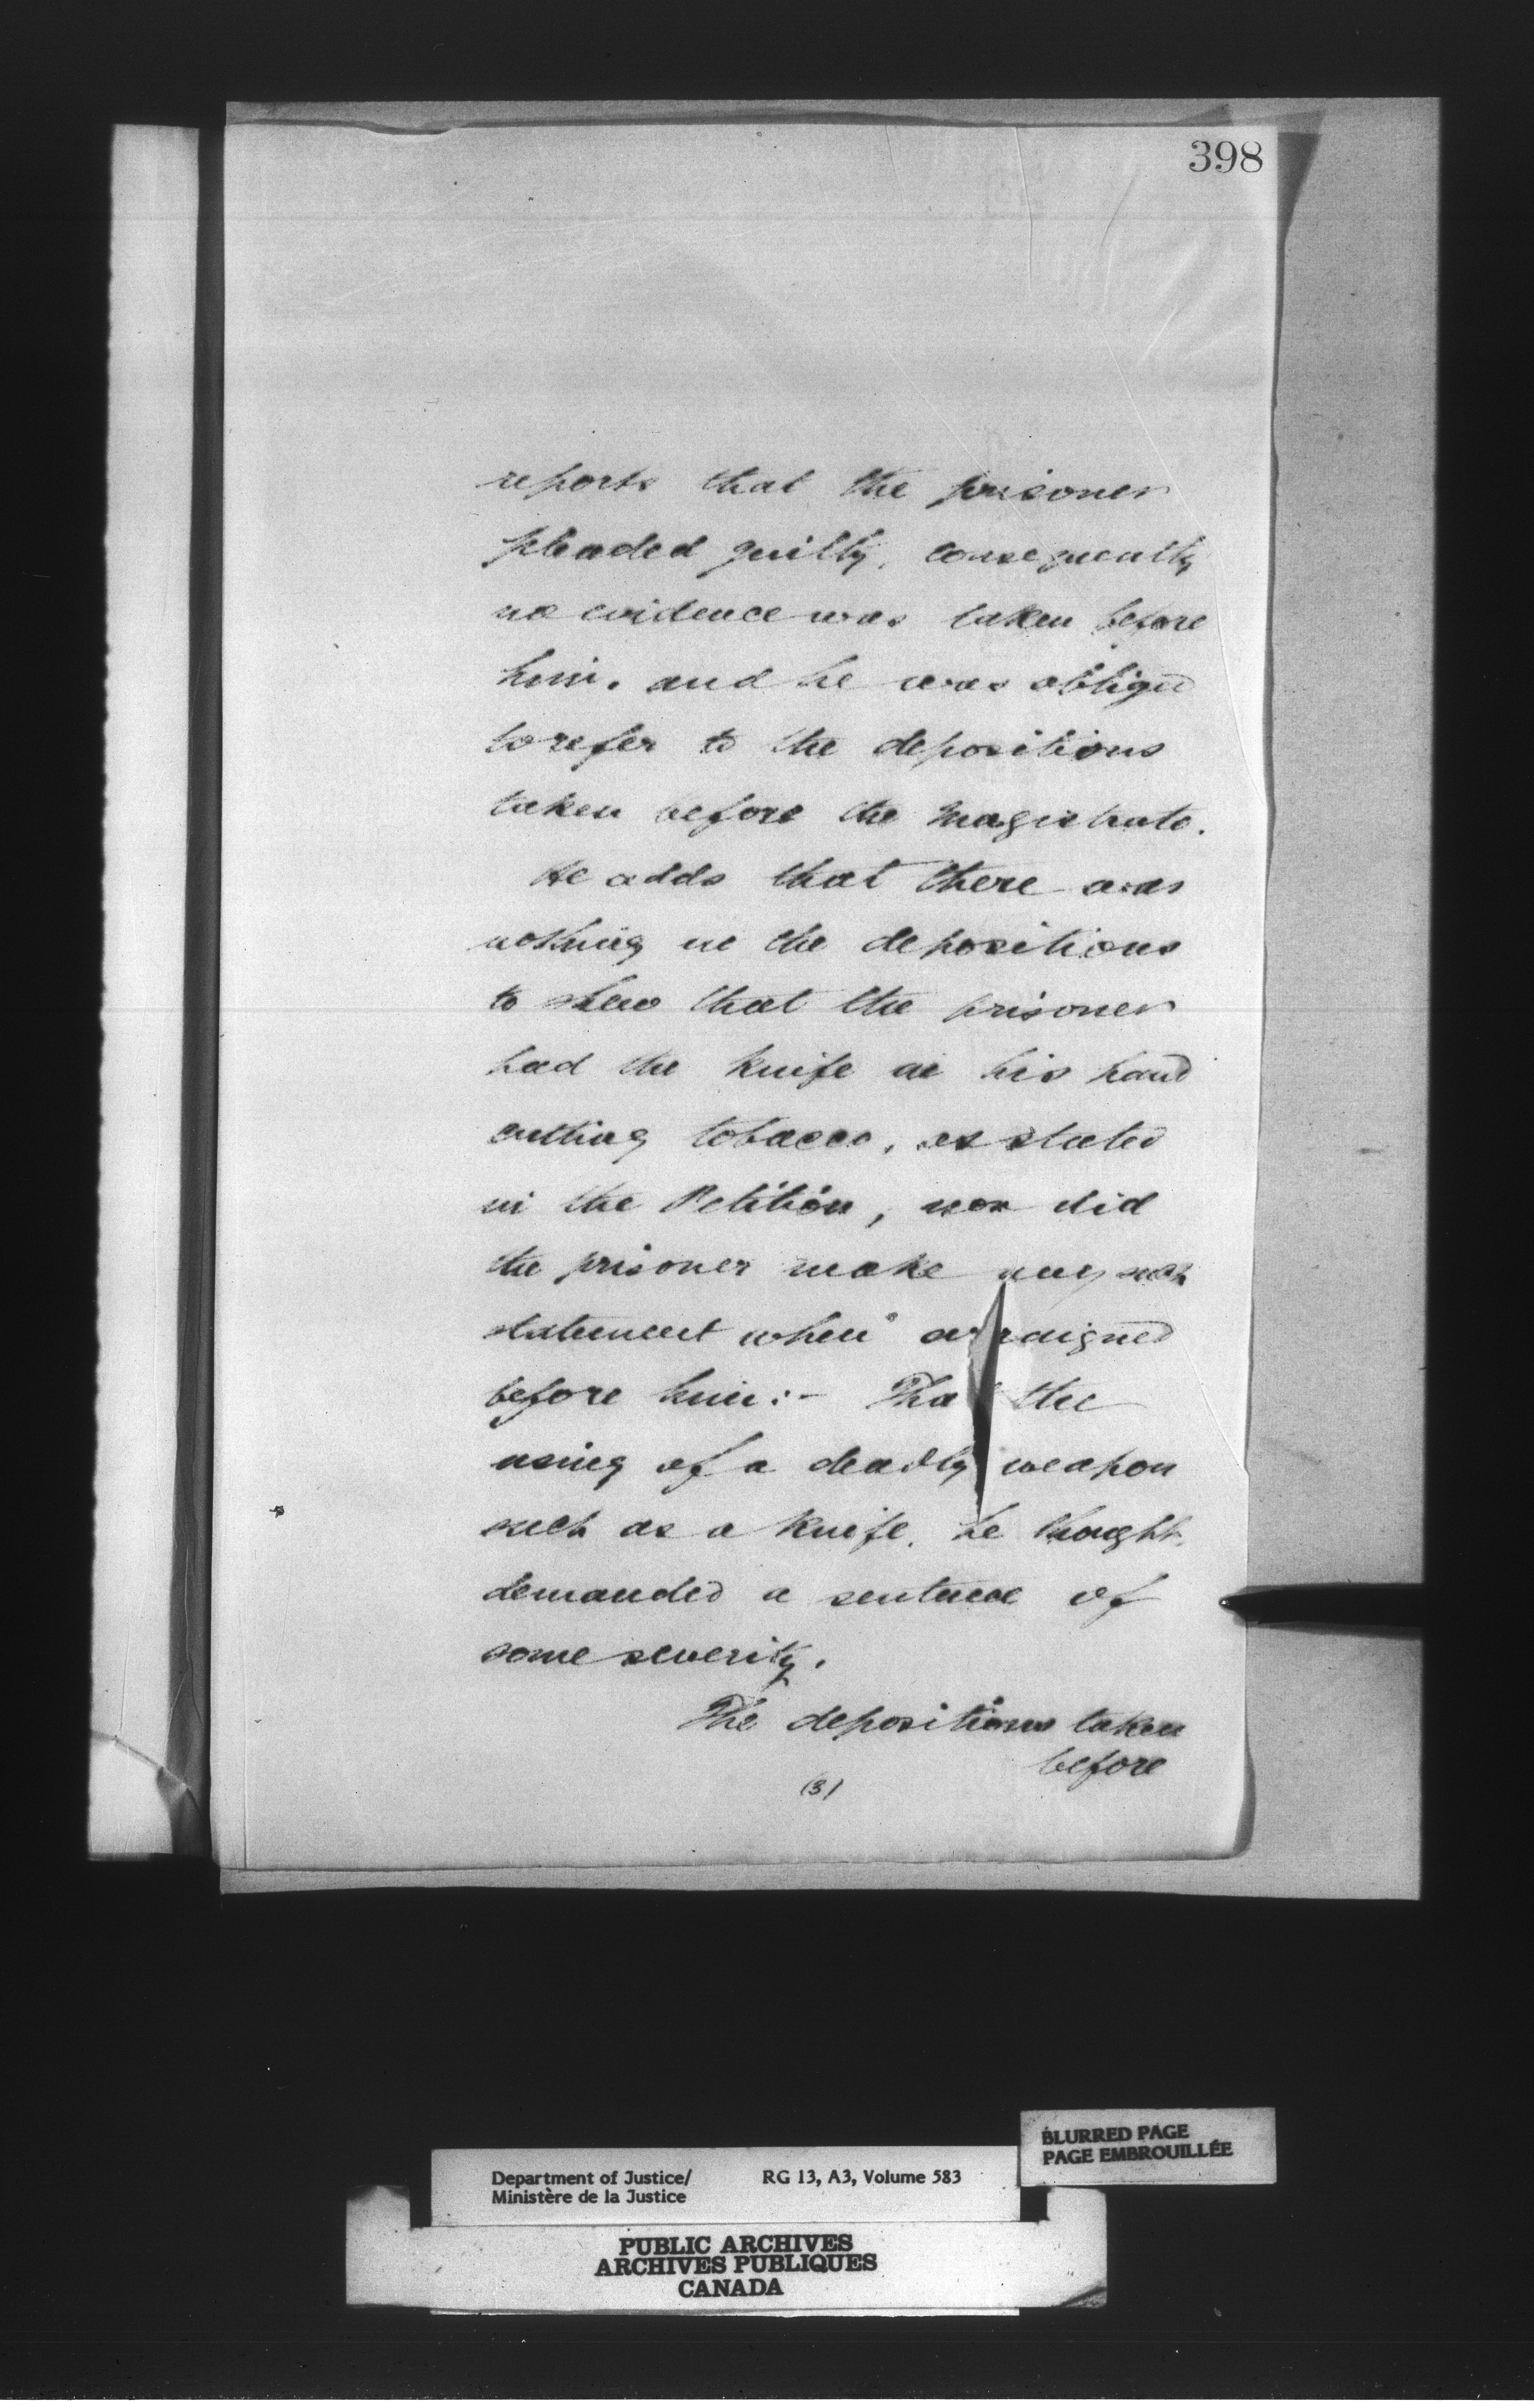 398
reports that the prisoner
pleaded guilty, consequently
no evidence was taken before
him. and he was obliged
to refer to the depositions
taken before the Magistrate.
He adds that there was
nothing in the depositions
to shew that the prisoner
had the knife in his hand
cutting tobacco, as stated
in the Petition, nor did
the prisoner make any such
statement when arraigned
before him:- That the
using of a deadly weapon
such as a knife, he thought,
demanded a sentence of
some severity.
The depositions taken
before
(3)
BLURRED PAGE
PAGE EMBROUILLÉE
Department of Justice/ RG 13, A3, Volume 583
Ministère de la Justice
PUBLIC ARCHIVES
ARCHIVES PUBLIQUES
CANADA